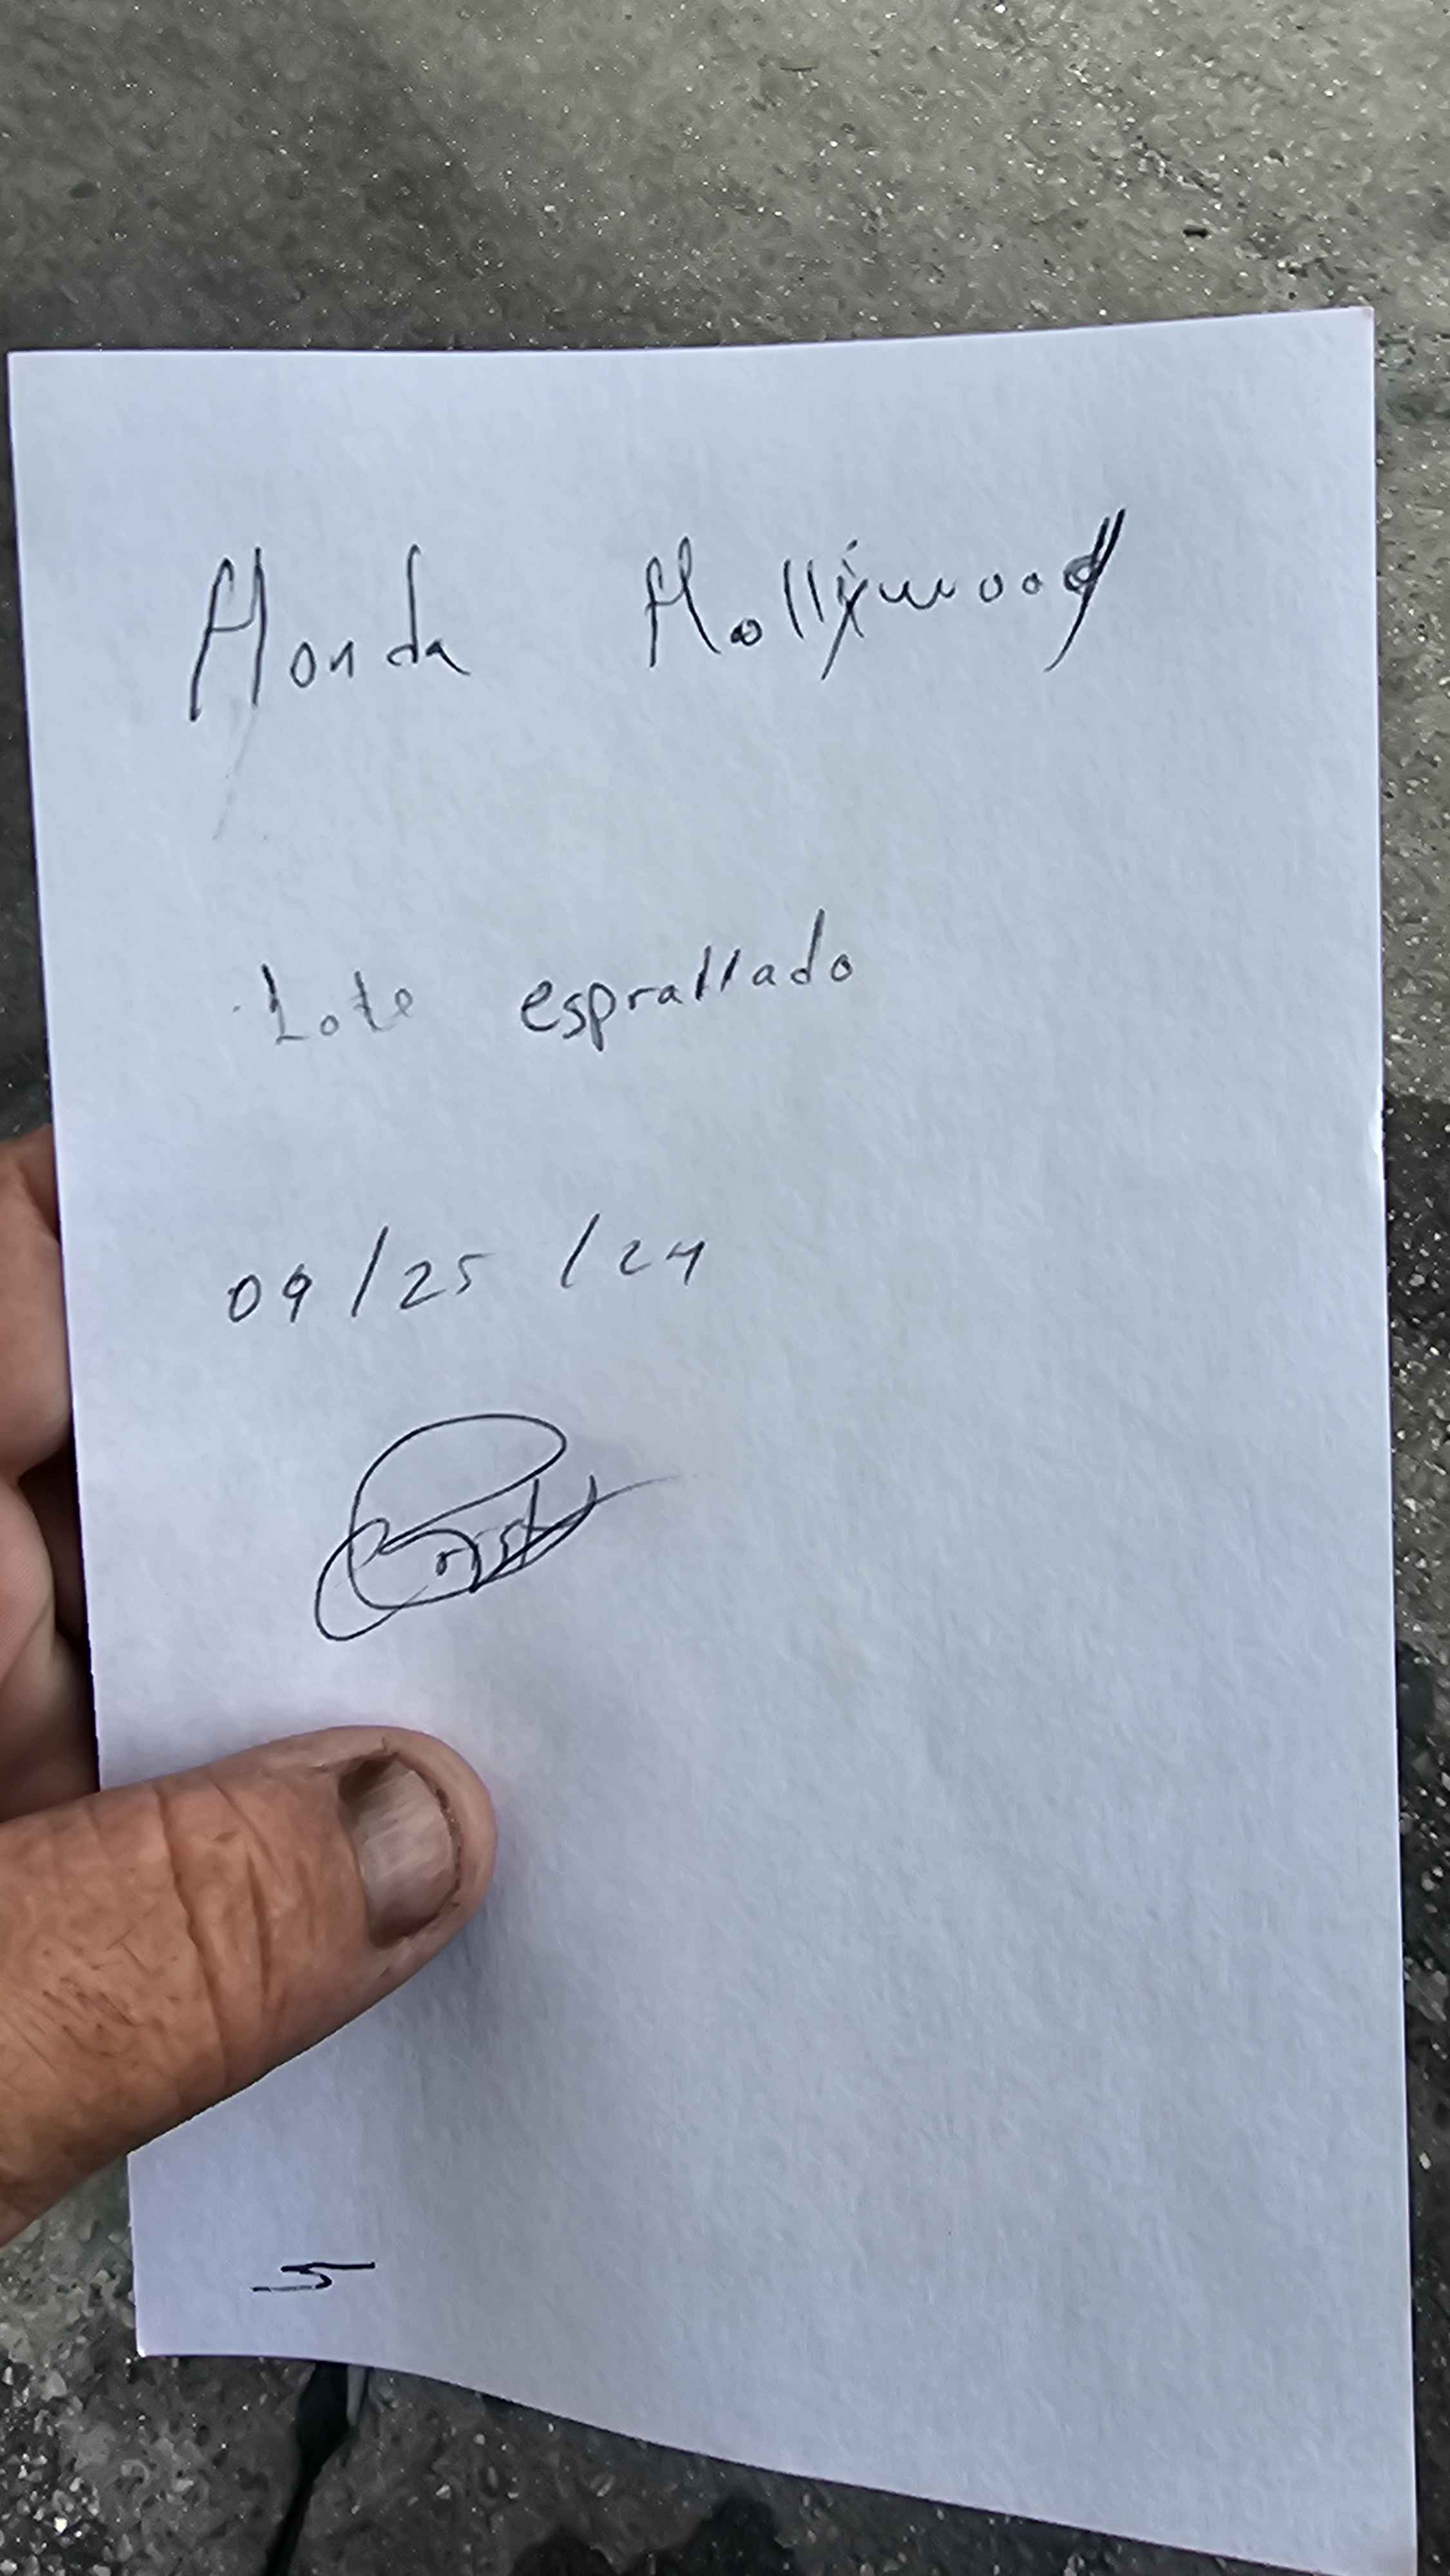 Honda Hollywood
Lote esprallado
09/25/24